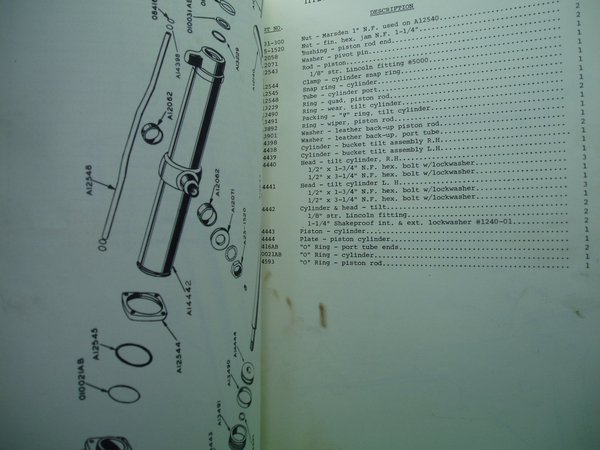 DESCRIPTION
PT NO.
31-300 Nut - Marsden 1" N.F. used on A12540 2
5-1520 Nut - fin. hex. jam N.F. 1-1/4" 2
2058 Bushing - piston rod end
2071 Washer - pivot pin
2543 Rod - piston
1/8" str. Lincoln fitting #5000
Clamp - cylinder snap ring
2544 Snap ring - cylinder
2545 Tube - cylinder port
2548 Ring - quad, piston rod
3229 Ring - wear, tilt cylinder
3490 Packing - "V" ring, tilt cylinder
3491 Ring - wiper, piston rod
3892 Washer - leather back-up piston rod
3901 Washer - leather back-up, port tube
4398 Cylinder - bucket tilt assembly R.H.
4438 Cylinder - bucket tilt assembly L.H.
4439 Head - tilt cylinder, R.H.
4440 1/2" x 1-3/4" N.F. hex. bolt w/lockwasher 3
1/2" x 3-1/4" N.F. hex. bolt w/lockwasher 1
4441 Head - tilt cylinder L. H. 1
1/2" x 1-3/4" N.F. hex. bolt w/lockwasher 3
1/2" x 3-1/4" N.F. hex. bolt w/lockwasher 1
4442 Cylinder & head - tilt 2
1/8" str. Lincoln fitting 2
1-1/4" Shakeproof int. & ext. lockwasher #1240-01 2
4443 Piston - cylinder 1
4444 Plate - piston cylinder 1
416AB "O" Ring - port tube ends 2
0021AB "O" Ring - cylinder 1
4593 "O" Ring - piston rod 1
010031AB
A13229
A14398
A12062
A12548
A12062
A12071
A25-1520
A14442
A12544
A12545
010021AB
A14444
A13490
A13491